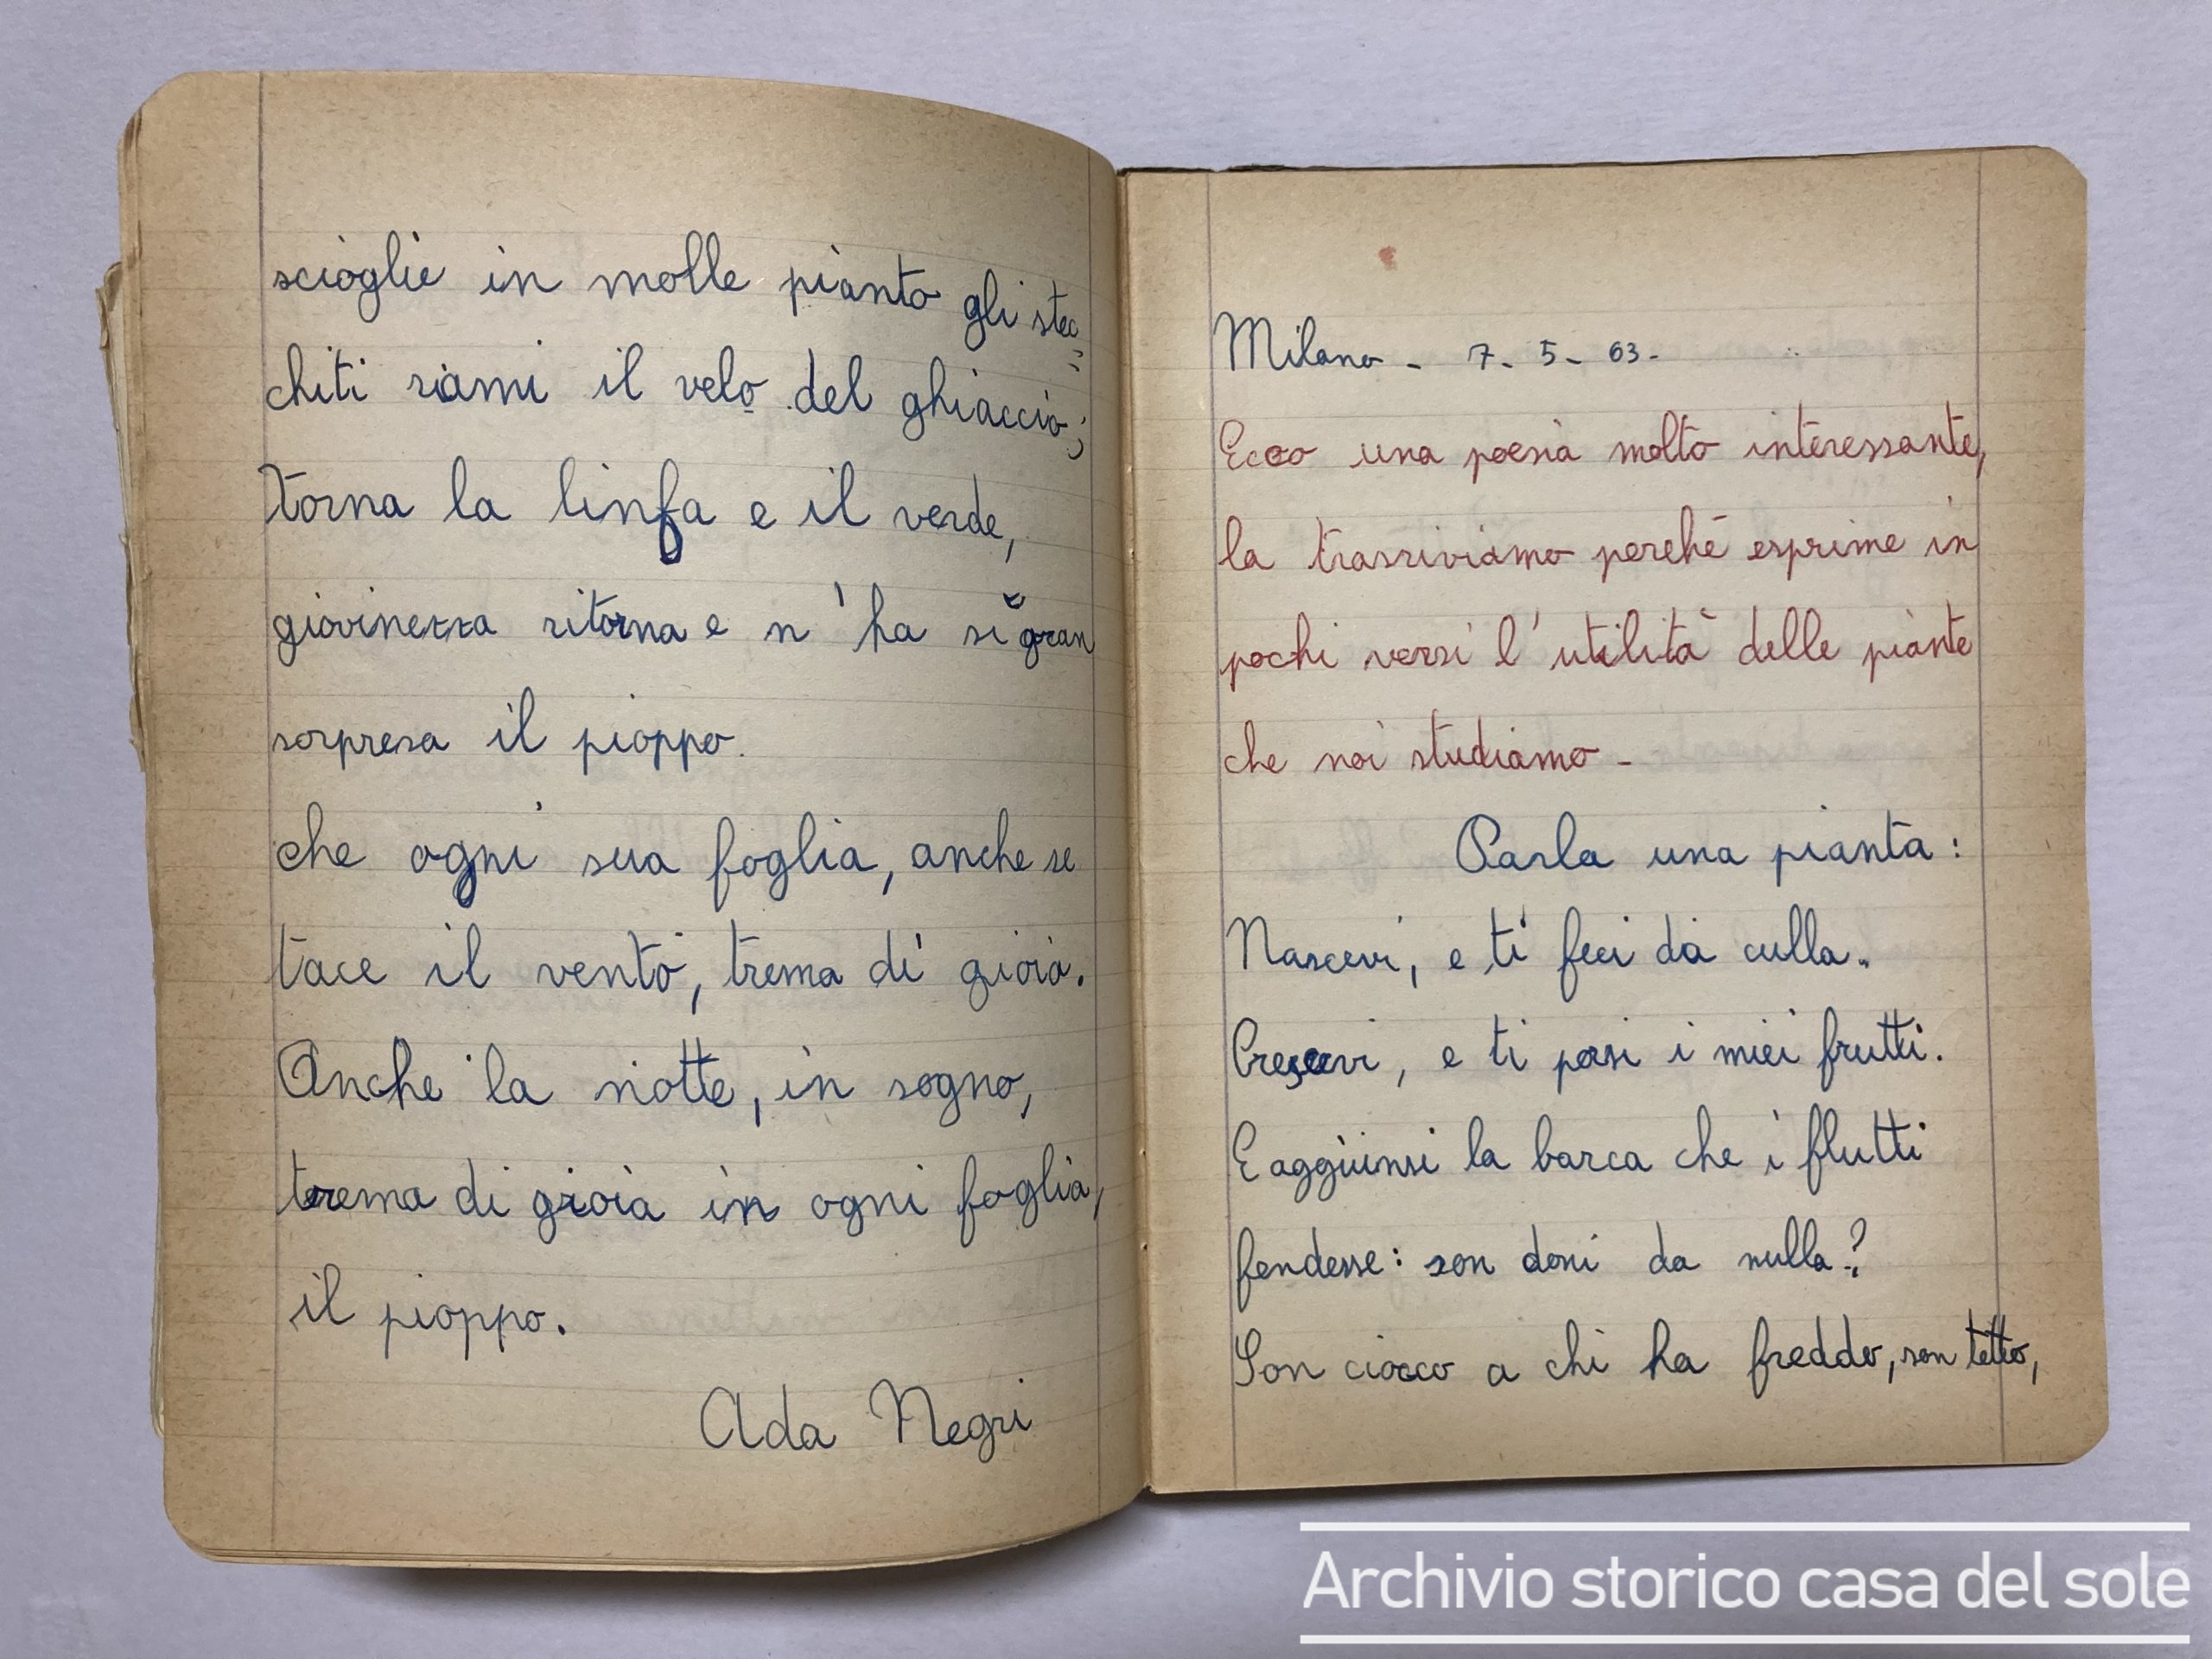 scioglie in molle pianto gli stec=
chiti rami il velo del ghiaccio;
torna la linfa e il verde,
giovinezza ritorna e n'ha sì gran
sorpresa il pioppo.
che ogni sua foglia, anche se
tace il vento, trema di gioia.
Anche la notte, in sogno,
trema di gioia in ogni foglia,
il pioppo.
Ada Negri
Milano - 7-5-63-
Ecco una poesia molto interessante,
la trasriviamo perché esprime in
pochi versi l'utilità delle piante
che noi studiamo -
Parla una pianta:
Nascevi, e ti feci da culla.
Crescevi, e ti porsi i miei frutti.
E aggiunsi la barca che i flutti
fendesse: son doni da nulla?
Son ciocco a chi ha freddo, son tetto,
Archivio storico casa del sole